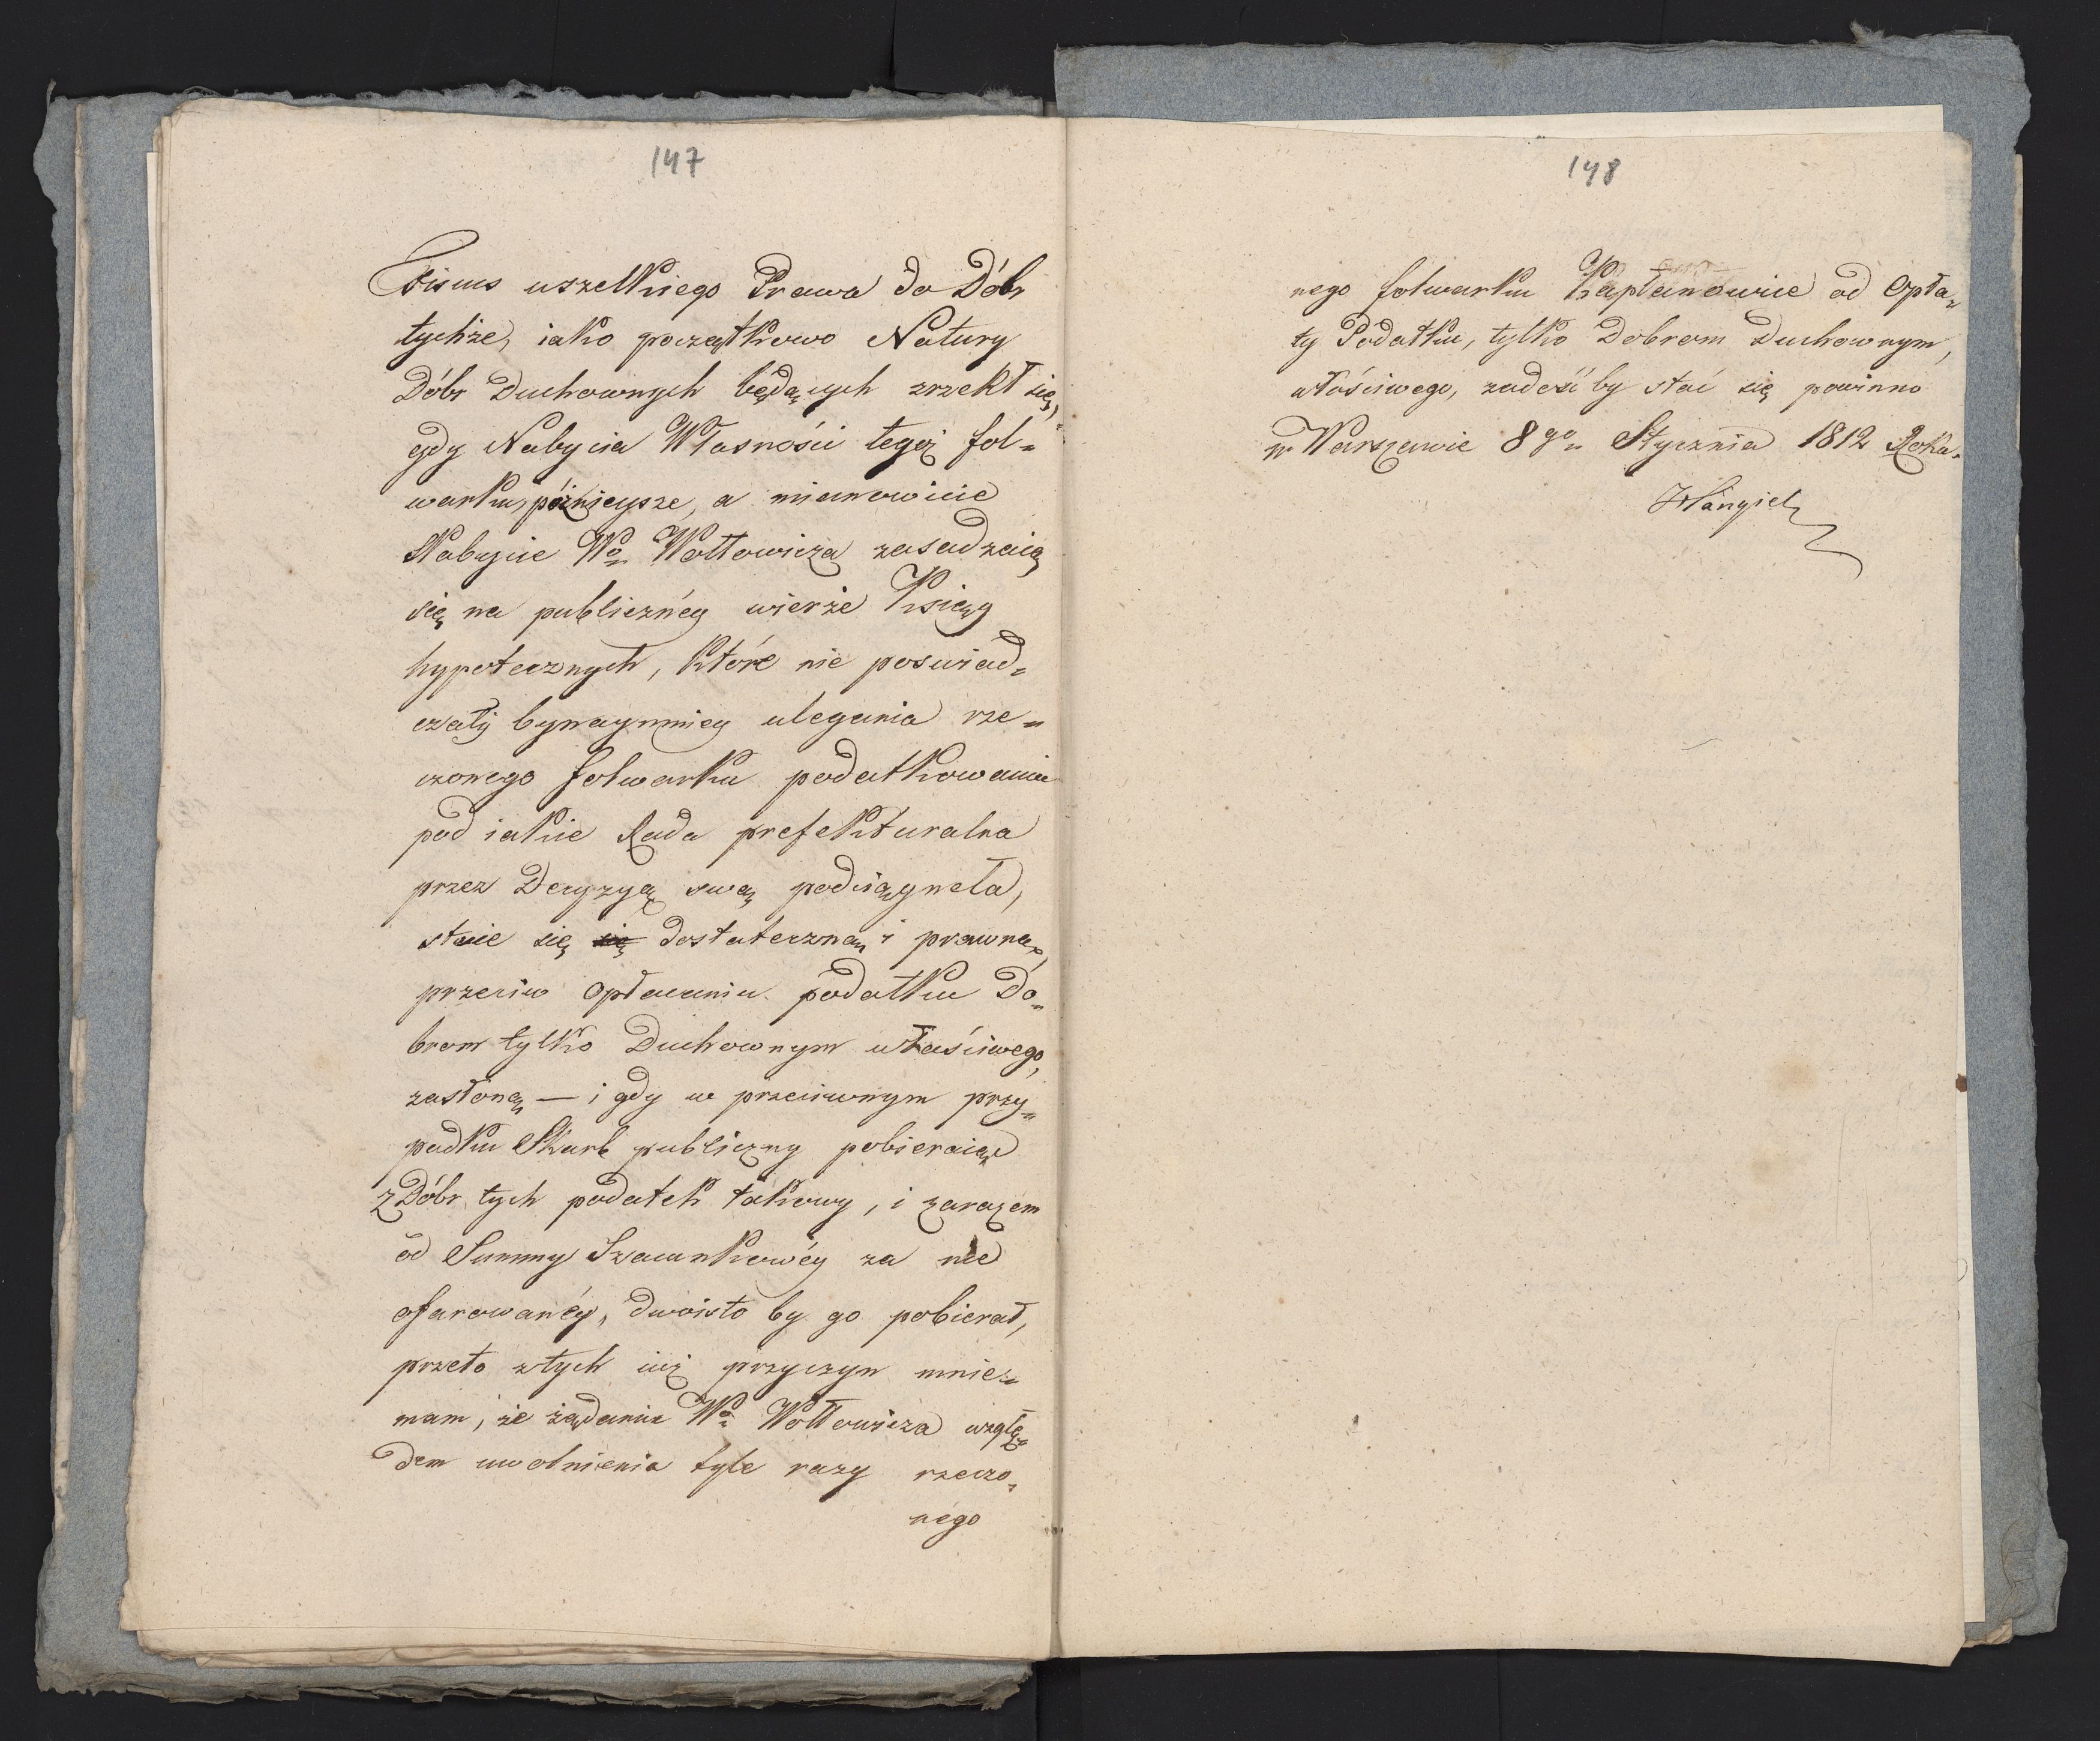 147
Fiscus wszelkiego Prawa do Dóbr
tychże, iako początkowo Natury
Dóbr Duchownych będących zrzekł się,
gdy Nabycia Własności tegoż fol=
warku, późnieysze, a mianowicie
Nabycie Wo Wołłowicza zasadzaią
się na publicznéy wierze Ksiąg
hypotecznych, które nie poswiad=
czały bynaymniey ulegania rze=
czonego folwarku podatkowaniu
pod iakie Rada prefekturalna
przez Decyzyą swą podciągneła,
staie się się dostateczną i prawną,
przeciw opłacaniu podatku Do=
brom tylko Duchownym właściwego,
zasłoną — i gdy w przeciwnym przy=
padku Skarb publiczny pobieraiąc
z Dóbr tych podatek takowy, i zarazem
od Summy Szacunkowéy za nie
ofarowanéy, dwoisto by go pobierał,
przeto z tych iuż przyczyn mnie=
mam, że żądaniu Wo Wołłowicza wzglę=
dem uwolnienia tyle razy rzeczo=
nego
148
nego folwarku Kapłanowie od Opła=
ty Podatku, tylko Dobrom Duchownym,
właściwego, zadość by stać się powinno
w Warszawie 8go Stycznia 1812 Roku.